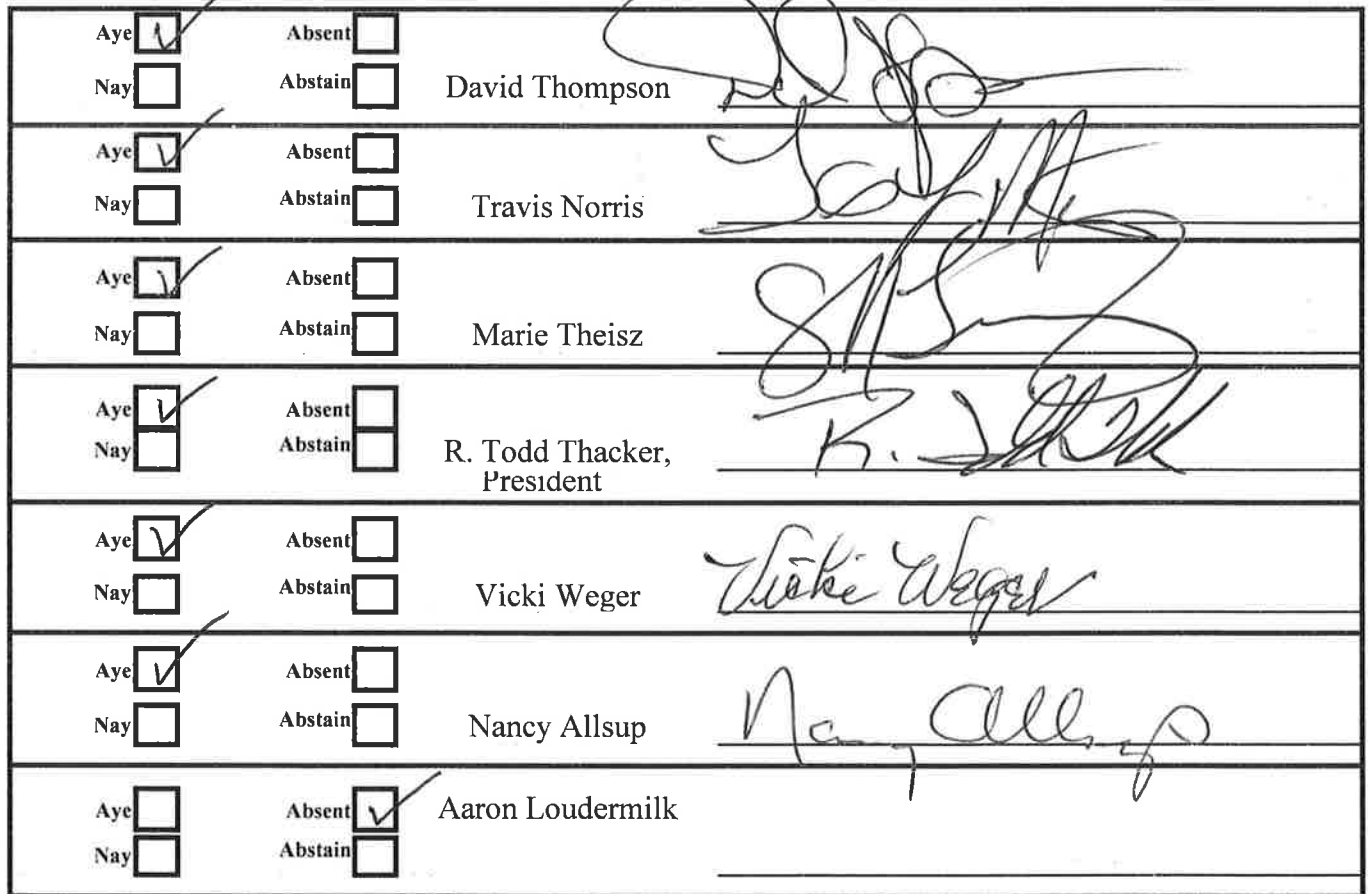 Aye Absent
Nay Abstain David Thompson
Aye Absent
Nay Abstain Travis Norris
Aye Absent
Nay Abstain Marie Theisz
Aye Absent
Nay Abstain R. Todd Thacker,
President
Aye Absent
Nay Abstain Vicki Weger Vicki Weger
Aye Absent
Nay Abstain Nancy Allsup Nancy Allsup
Aye Absent Aaron Loudermilk
Nay Abstain